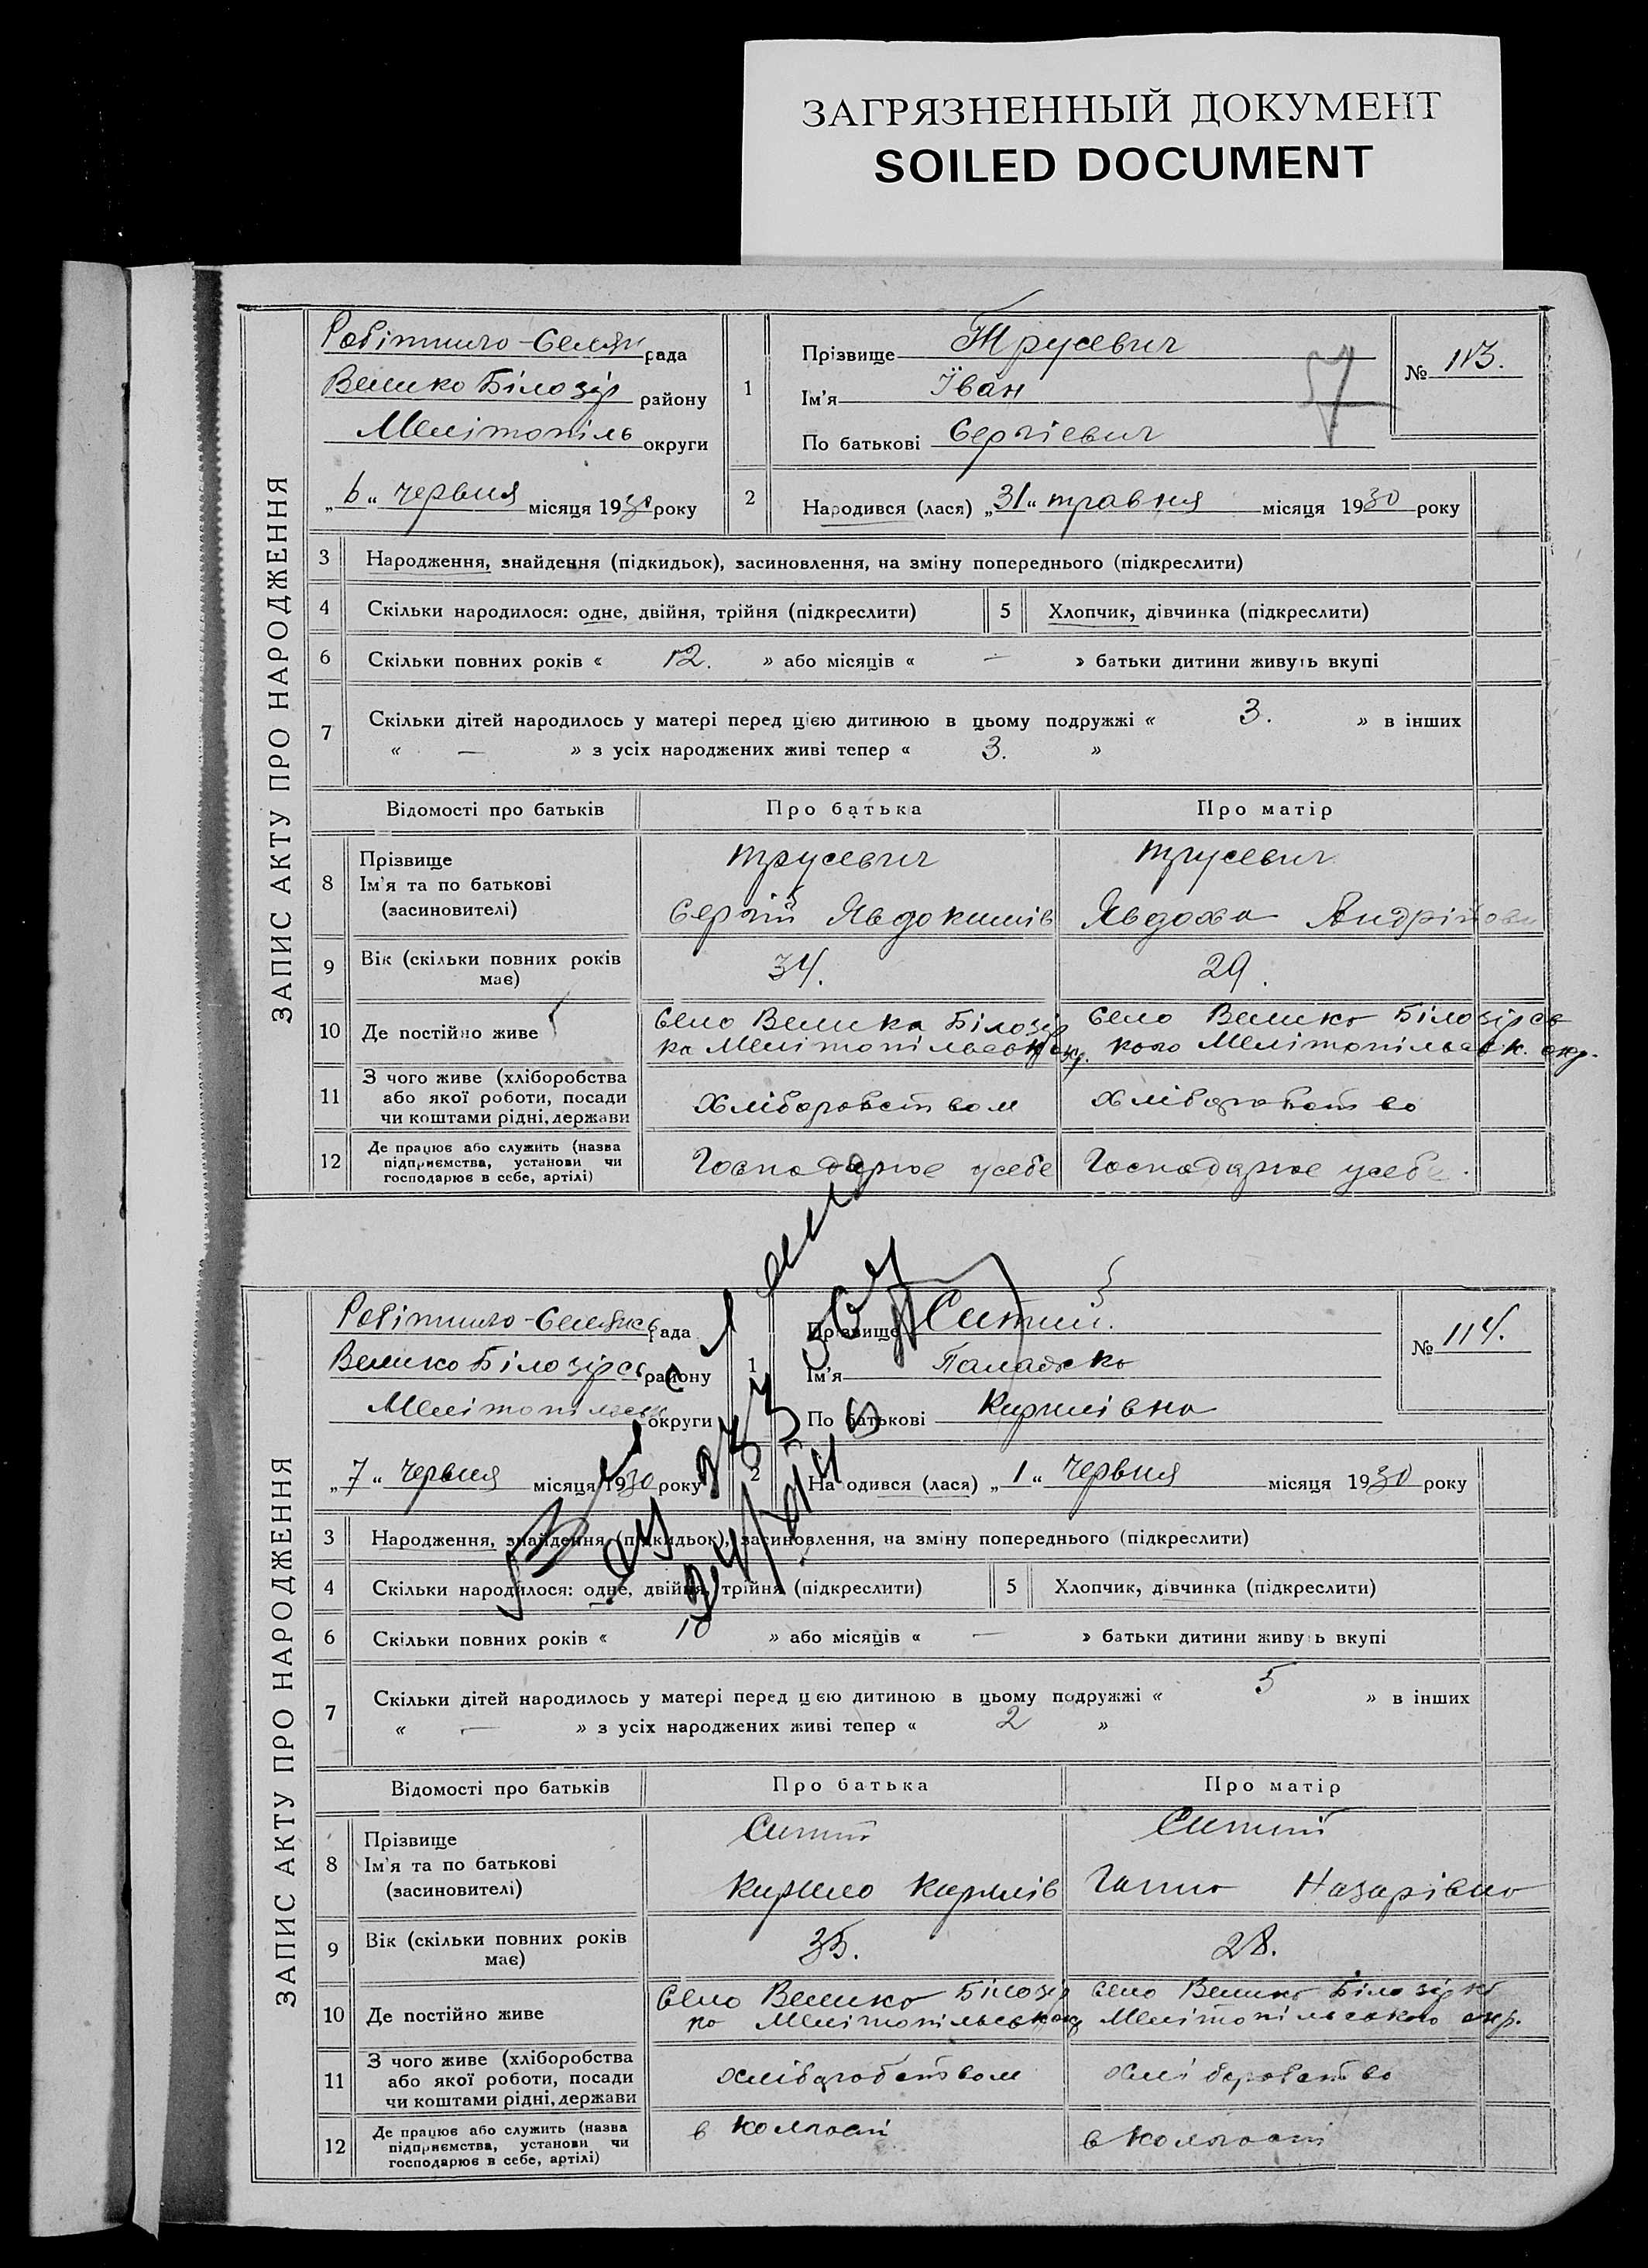 ЗАГРЯЗНЕННЫЙ ДОКУМЕНТ
SOILED DOCUMENT
ЗАПИС АКТУ ПРО НАРОДЖЕННЯ
Робітничо-Селян рада
Велико Білозір району
Мелітопіль округи
„6“ червня місяця 1930 року
1 Прізвище Трусевич
Ім'я Іван
По батькові Сергієвич
№ 113.
2 Народився (лася) „31“ травня місяця 1930 року
3 Народження, знайдення (підкидьок), засиновлення, на зміну попереднього (підкреслити)
4 Скільки народилося: одне, двійня, трійня (підкреслити) 5 Хлопчик, дівчинка (підкреслити)
6 Скільки повних років « 12. » або місяців « — » батьки дитини живуть вкупі
7 Скільки дітей народилось у матері перед цією дитиною в цьому подружжі « 3. » в інших
« — » з усіх народжених живі тепер « 3. »
Відомості про батьків Про батька Про матір
8 Прізвище Трусевич Трусевич
Ім'я та по батькові
(засиновителі) Сергій Явдокимів Явдоха Андрійовн
9 Вік (скільки повних років має) 34. 29.
10 Де постійно живе Село Велика Білозір Село Велико Білозірсь
ка Мелітопільськ окр. кого Мелітопільськ. окр.
11 З чого живе (хліборобства
або якої роботи, посади
чи коштами рідні, держави Хліборобством Хліборобство
12 Де працює або служить (назва
підприємства, установи чи
господарює в себе, артілі) Господарює усебе Господарює усебе.
ЗАПИС АКТУ ПРО НАРОДЖЕННЯ
Робітничо-Селянсь рада
Велико Білозірсь району
Мелітопільськ округи
„7“ червня місяця 1930 року
1 Прізвище Ситий.
Ім'я Палажка
По батькові Кирилівна
№ 114.
2 Народився (лася) „1“ червня місяця 1930 року
3 Народження, знайдення (підкидьок), засиновлення, на зміну попереднього (підкреслити)
4 Скільки народилося: одне, двійня, трійня (підкреслити) 5 Хлопчик, дівчинка (підкреслити)
6 Скільки повних років « 10 » або місяців « — » батьки дитини живуть вкупі
7 Скільки дітей народилось у матері перед цією дитиною в цьому подружжі « 5 » в інших
« — » з усіх народжених живі тепер « 2 »
Відомості про батьків Про батька Про матір
8 Прізвище Ситий Ситий
Ім'я та по батькові
(засиновителі) Кирило Кирилів Ганна Назарівна
9 Вік (скільки повних років має) 35. 28.
10 Де постійно живе Село Велико Білозір Село Велико Білозірка
ка Мелітопільськ окр Мелітопільського окр.
11 З чого живе (хліборобства
або якої роботи, посади
чи коштами рідні, держави хліборобством хліборобство
12 Де працює або служить (назва
підприємства, установи чи
господарює в себе, артілі) в колгоспі в колгоспі